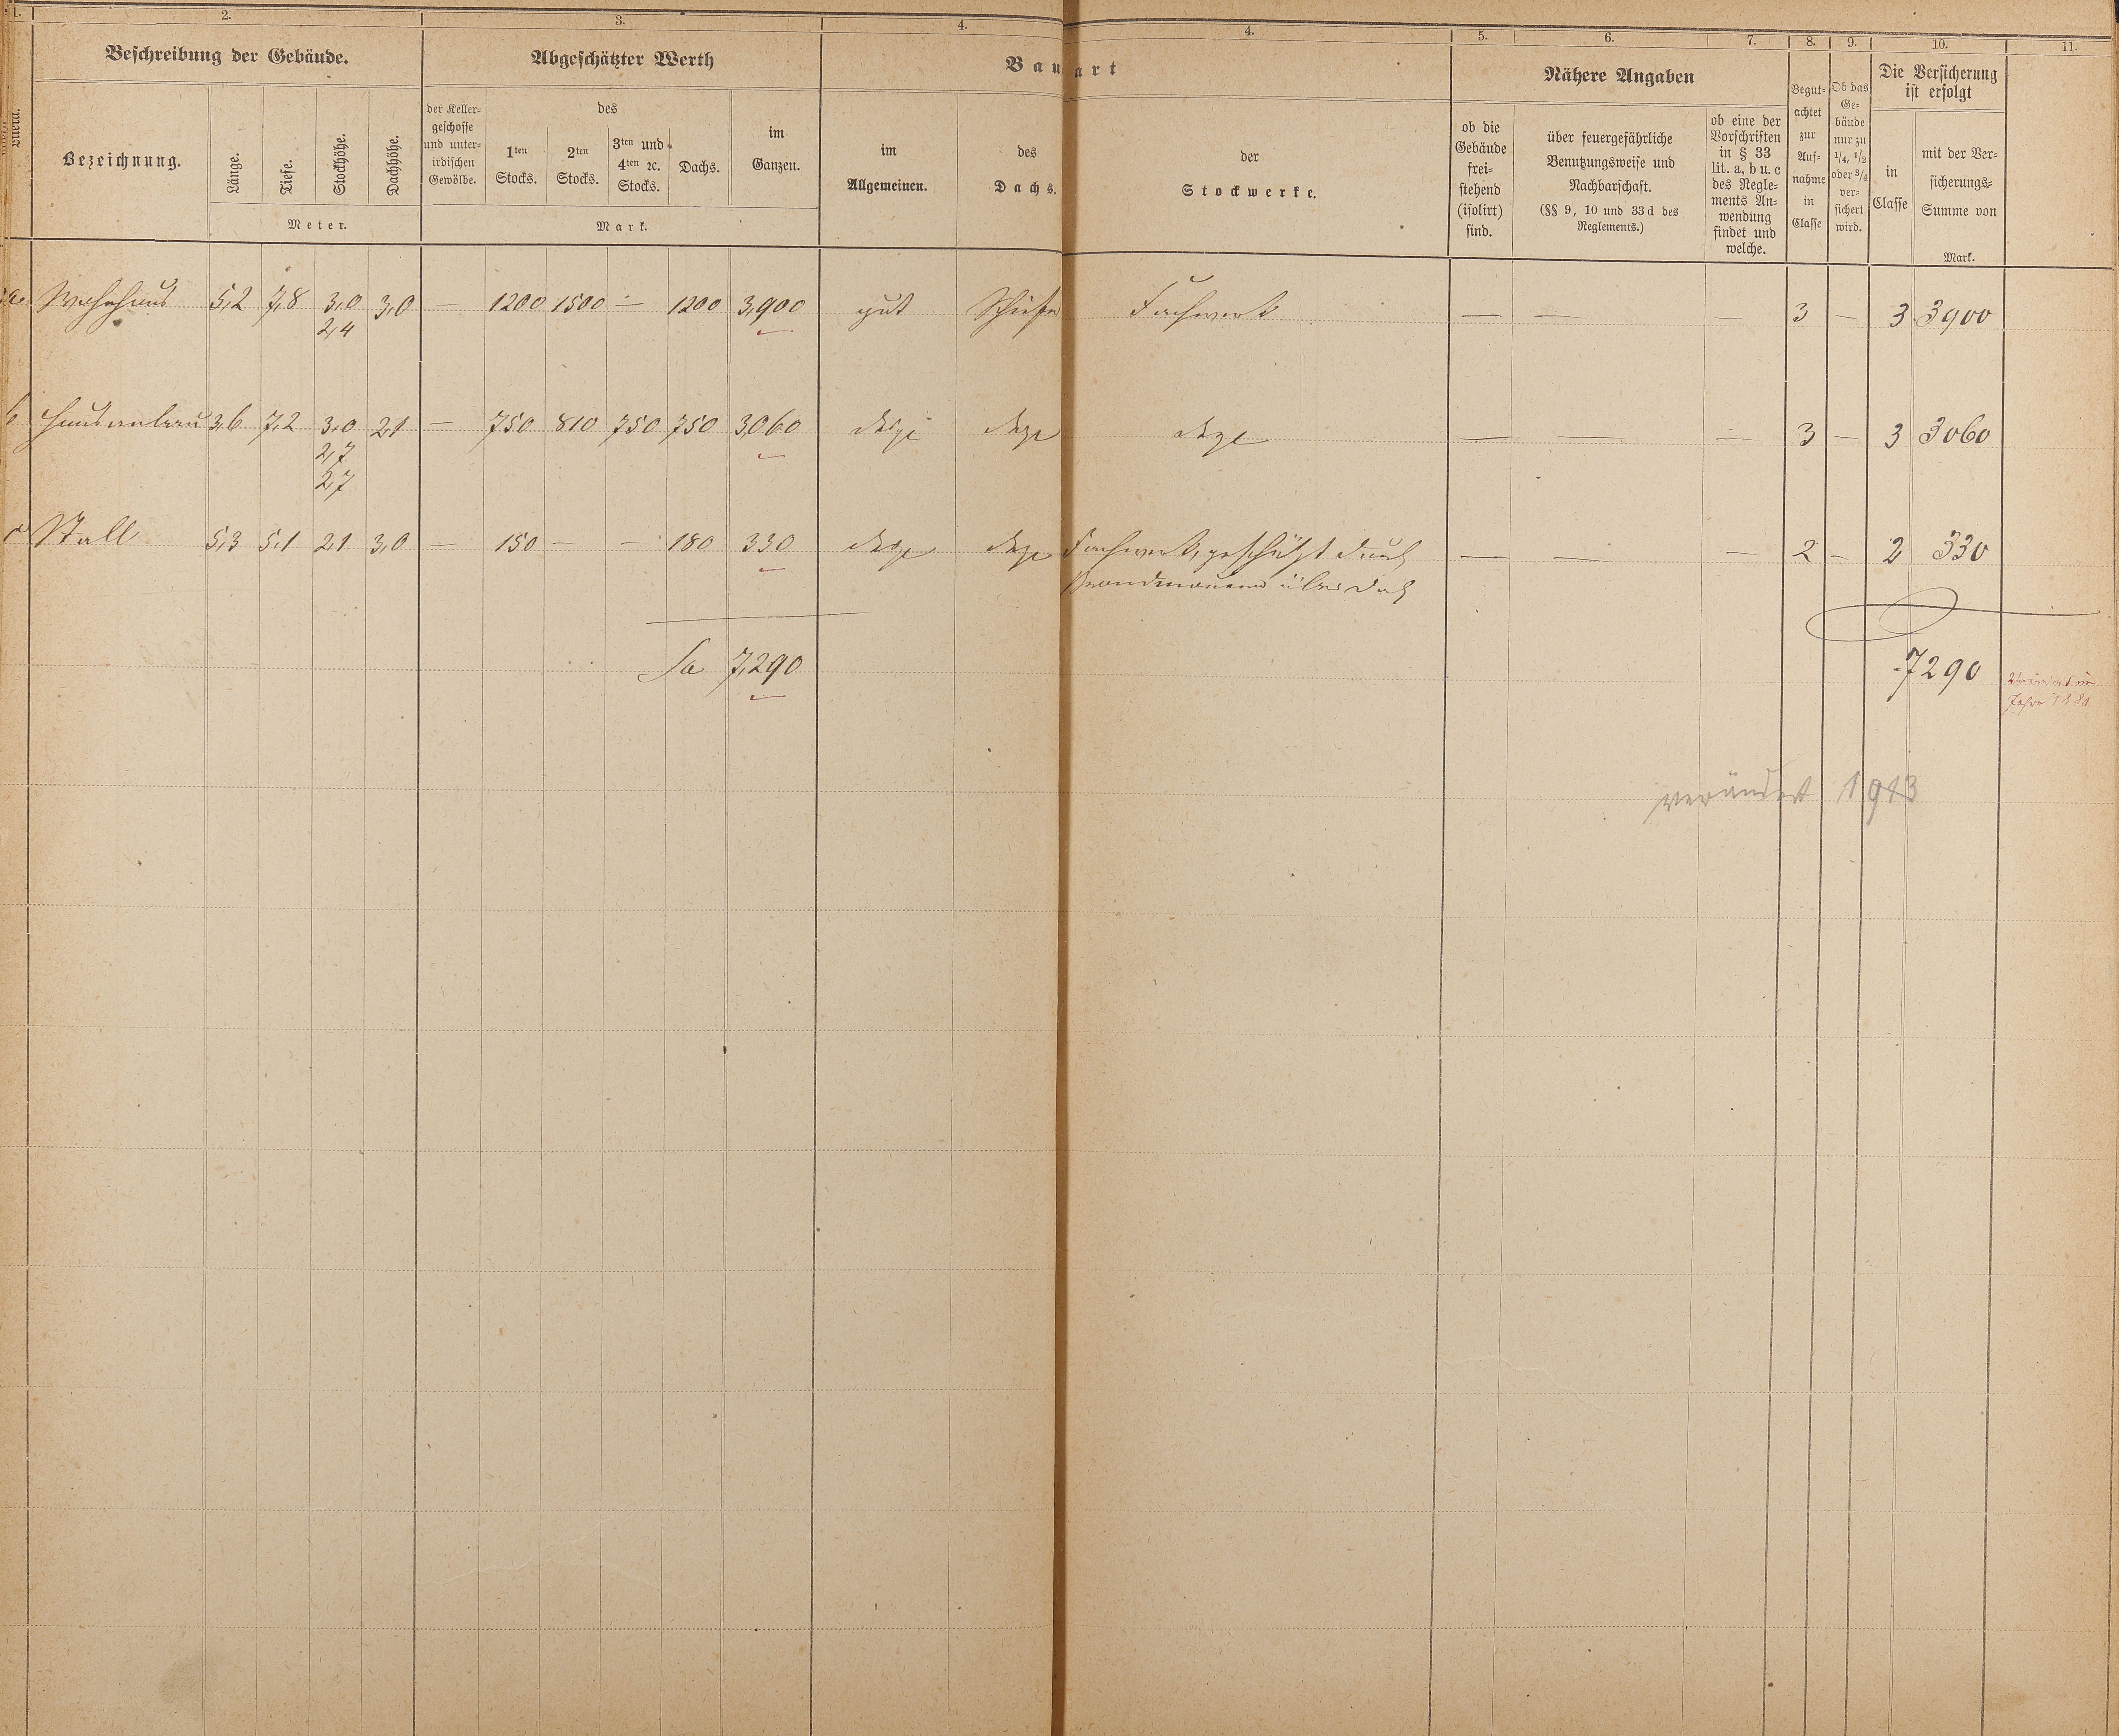 1. 2. 3. 4. 4. 5. 6. 7. 8. 9. 10. 11.
Beschreibung der Gebäude. Abgeschätzter Werth Bauart Nähere Angaben
Begut-
achtet
zur
Auf-
nahme
in
Classe
Ob das
Ge-
bäude
nur zu
1/4, 1/2
oder 3/4
ver-
sichert
wird.
Die Versicherung
ist erfolgt
Litera.
Bezeichnung.
Länge.
Tiefe.
Stockhöhe.
Dachhöhe.
Meter.
der Keller-
geschosse
und unter-
irdischen
Gewölbe.
des
1ten
Stocks.
2ten
Stocks.
3ten und
4ten ꝛc.
Stocks.
Dachs.
im
Ganzen.
Mark.
im
Allgemeinen.
des
Dachs.
der
Stockwerke.
ob die
Gebäude
frei-
stehend
(isolirt)
sind.
über feuergefährliche
Benutzungsweise und
Nachbarschaft.
(§§ 9, 10 und 33 d des
Reglements.)
ob eine der
Vorschriften
in § 33
lit. a, b u. c
des Regle-
ments An-
wendung
findet und
welche.
in
Classe
mit der Ver-
sicherungs-
Summe von
Mark.
a Wohnhaus 5,2 7,8 3,0 3,0 — 1200 1500 — 1200 3,900 gut Schiefer Fachwerk — — — 3 — 3 3900
2,4
b Hausanbau 3,6 7,2 3,0 2,1 — 750 810 750 750 3,060 dsgl dsgl dsgl — — — 3 — 3 3060
2,7
2,7
c Stall 5,3 5,1 2,1 3,0 — 150 — — 180 330 dsgl dsgl Fachwerk, geschützt durch — — — 2 — 2 330
Brandmauern über Dach
Sa 7,290 7290
Jahre
verändert 1913